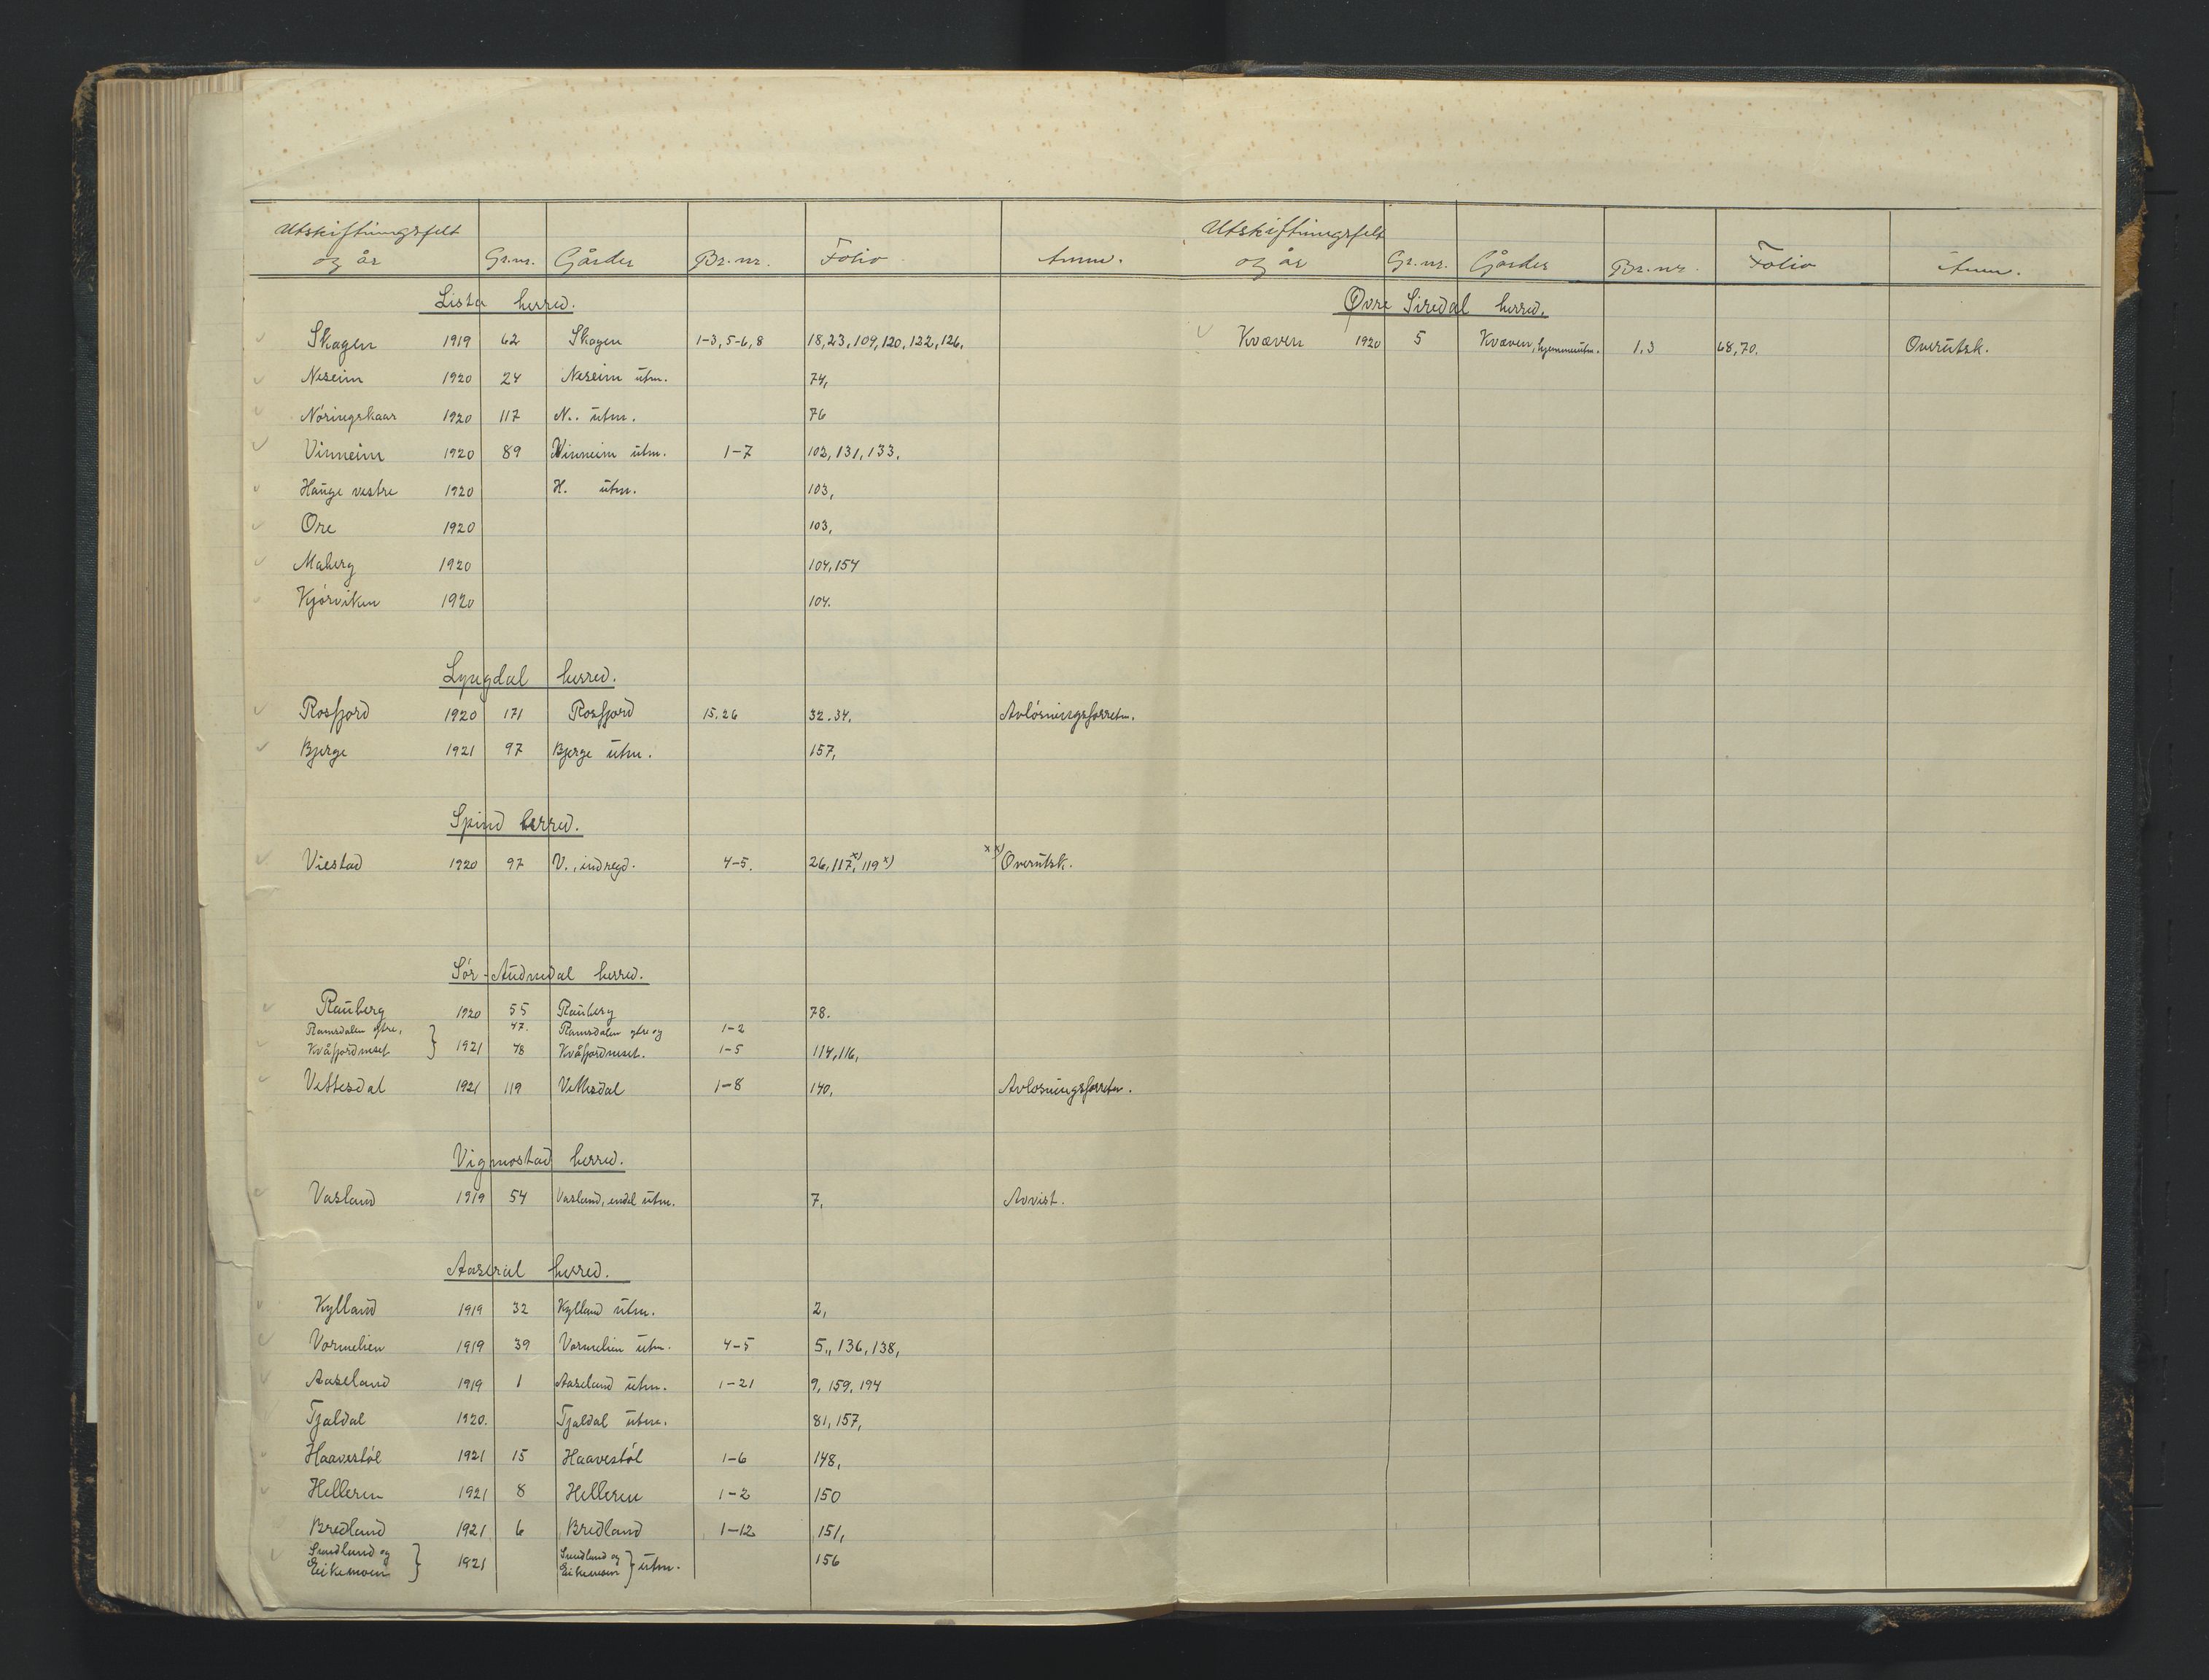 Utskiftningsfelt
og år Gr.nr. Gårder Br.nr. Folio Anm.
Lista herred.
Skagen 1919 62 Skagen 1-3, 5-6, 8 18, 23, 109, 120, 122, 126.
Neseim 1920 24 Neseim utm. 74,
Nöringskaar 1920 117 N.. utm. 76
Vinneim 1920 89 Vinneim utm. 1-7 102, 131, 133,
Hauge vestre 1920 H. utm. 103,
Ore 1920 103,
Maberg 1920 104, 154
Kjörviken 1920 104.
Lyngdal herred.
Rosfjord 1920 171 Rosfjord 15.26 32.34. Avlösningsforretn.
Bjerge 1921 97 Bjerge utm. 157,
Spind herred.
Viestad 1920 97 V., indregd. 4-5. 26, 117,x) 119 x) xx) Overutsk.
Sör-Audnedal herred.
Rauberg 1920 55 Rauberg 78.
Ramsdalen ytre, 47. Ramsdalen ytre og 1-2
Kvåfjordneset } 1921 48 Kvåfjordneset. 1-5 114, 116,
Vettesdal 1921 119 Vettesdal 1-8 140, Avlosningsforretn.
Vigmostad herred.
Vasland 1919 54 Vasland, endel utm. 7. Avvist.
Aaseral herred.
Kylland 1919 32 Kylland utm. 2,
Vormelien 1919 39 Vormelien utm. 4-5 5,, 136, 138,
Aaseland 1919 1 Aaseland utm. 1-21 9, 159, 194
Tjaldal 1920. Tjaldal utm. 81, 157,
Haavestöl 1921 15 Haavestöl 1-6 148,
Helleren 1921 8 Helleren 1-2 150
Bredland 1921 6 Bredland 1-12 151,
Sundland og Sundland og
Eikemoen } 1921 Eikemoen } utm. 156
Utskiftningsfelt
og år Gr.nr. Gårder Br.nr. Folio Anm.
Øvre Siredal herred.
Kvæven 1920 5 Kvæven, hjemmeutm. 1.3 68, 70. Overutsk.